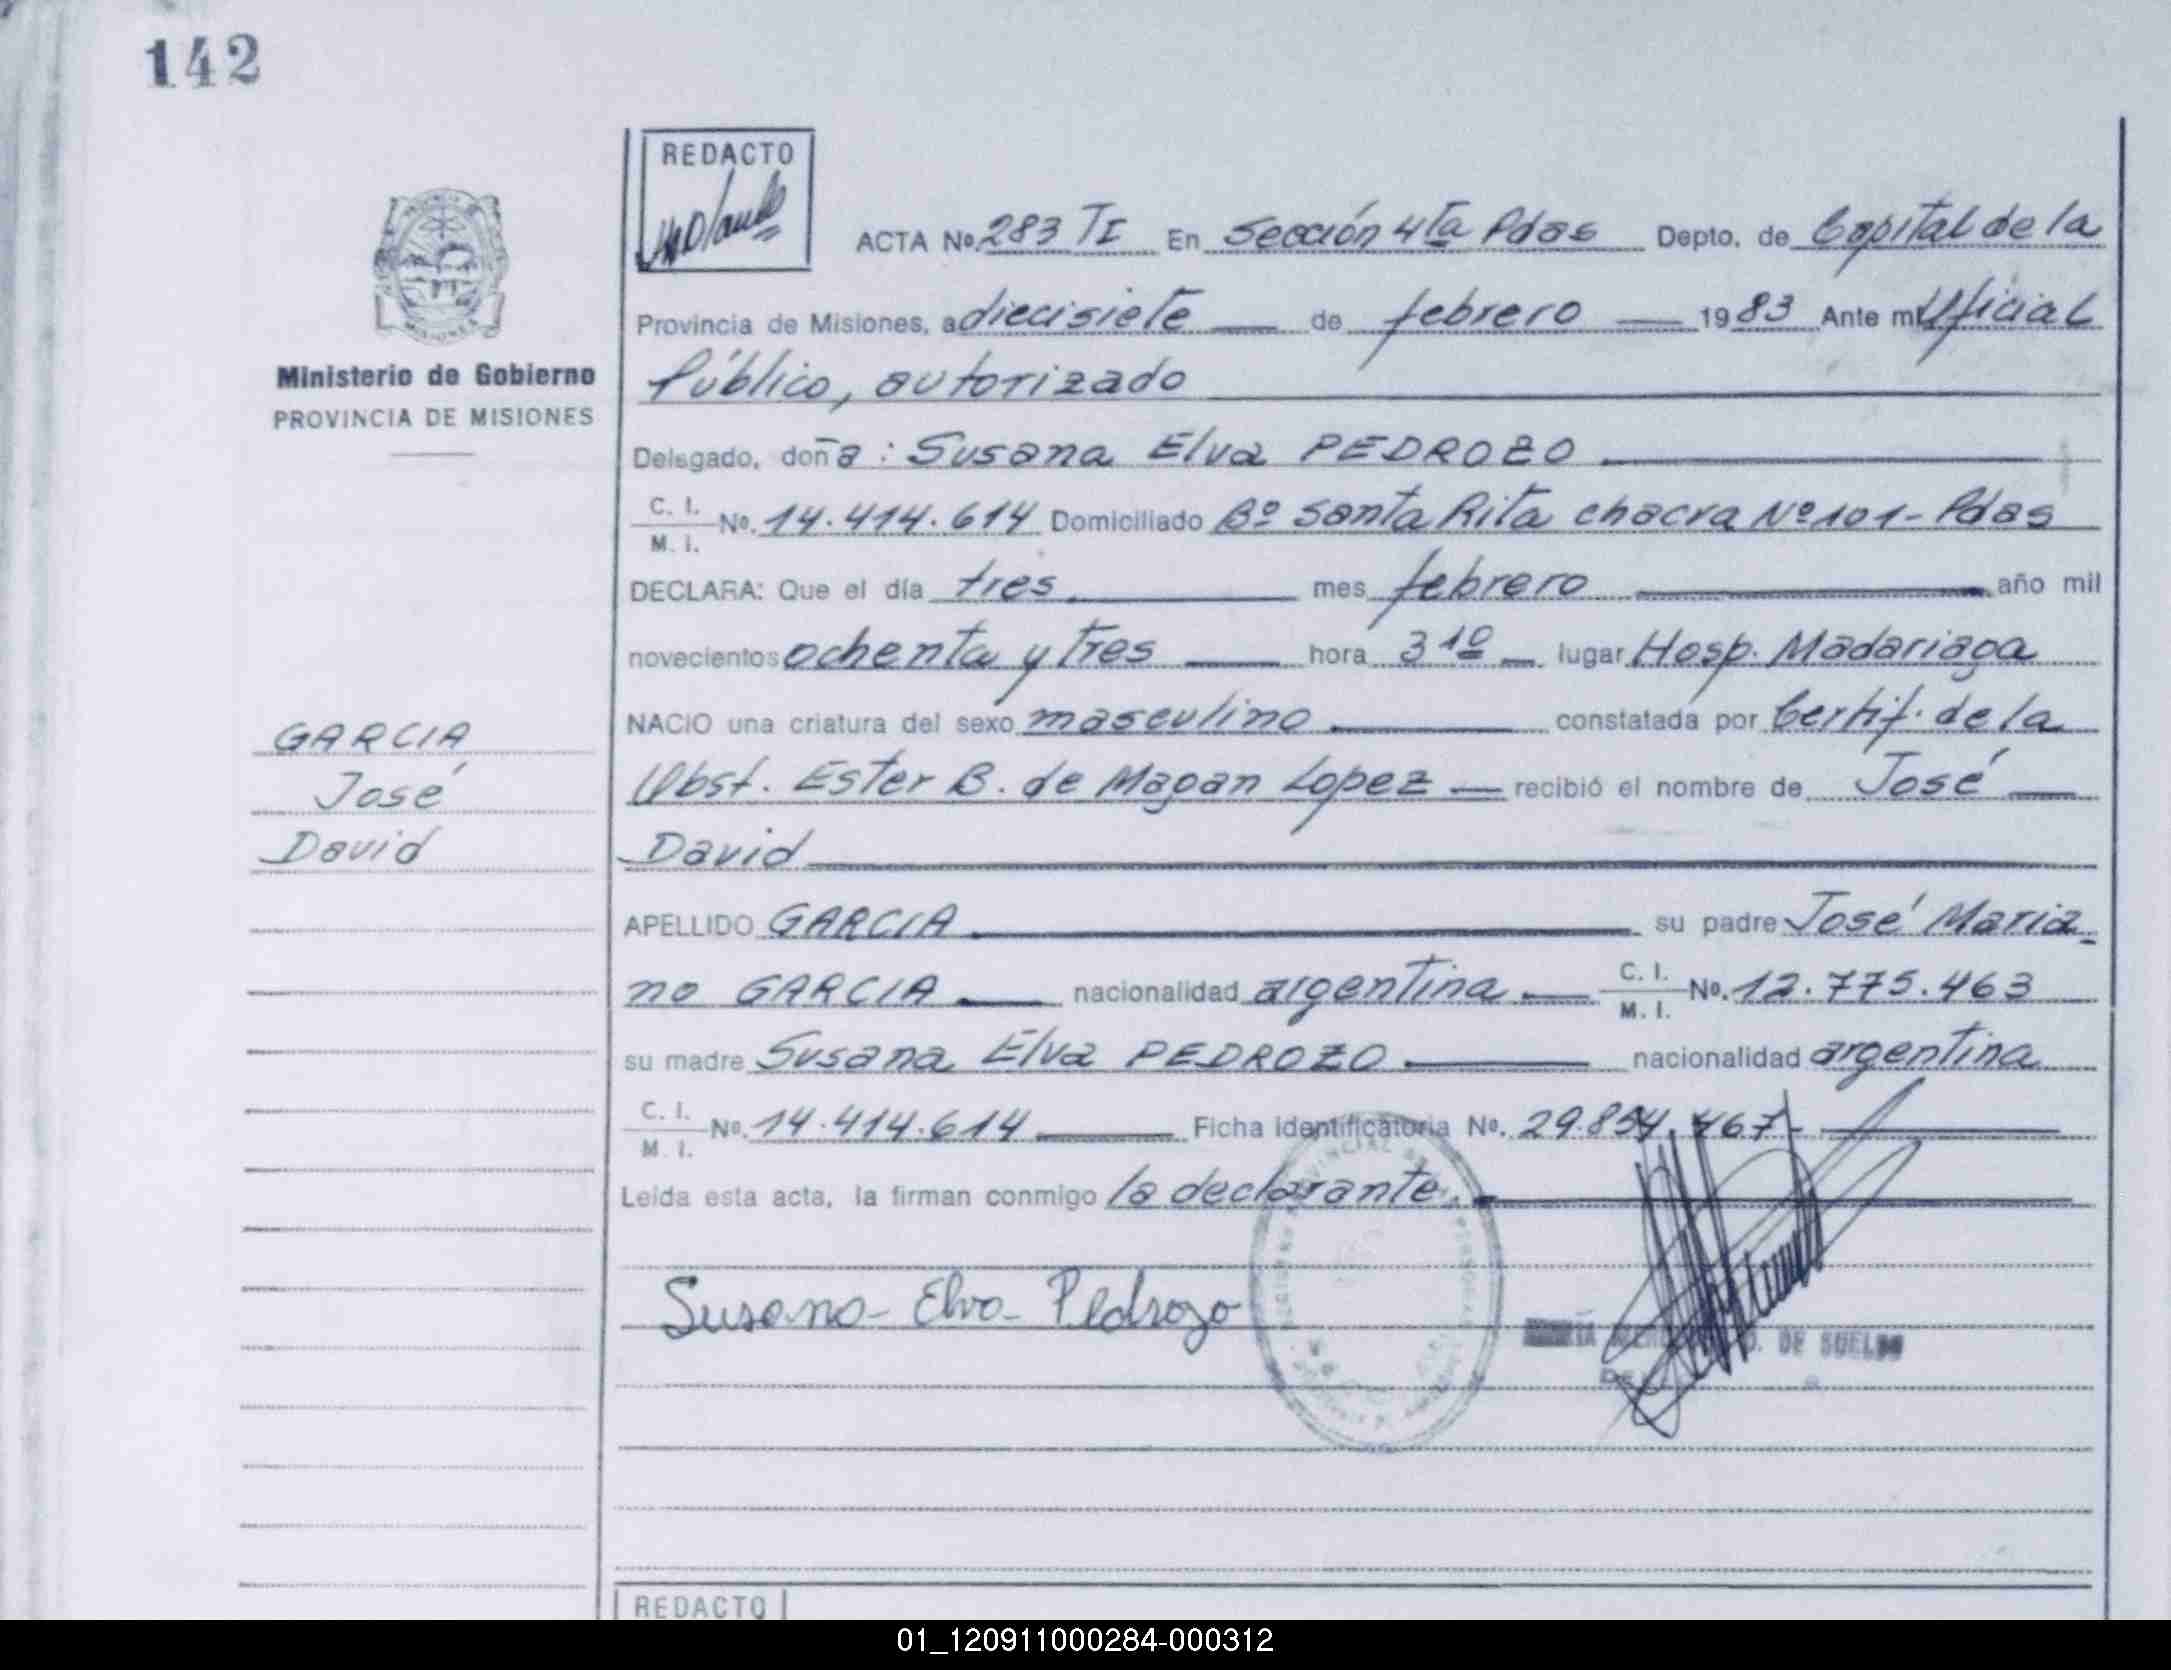 142
REDACTO
ACTA No. 283 TI En Sección 4ta Pdas Depto. de Capital de la
Provincia de Misiones, a diecisiete de febrero 1983 Ante mí Oficial
Público, autorizado
Ministerio de Gobierno
PROVINCIA DE MISIONES
Delegado, doña : Susana Elva PEDROZO
C. I.
M. I. No. 14.414.614 Domiciliado Bº Santa Rita chacra Nº 101 - Pdas
DECLARA: Que el día tres mes febrero año mil
novecientos ochenta y tres hora 3 10 lugar Hosp. Madariaga
NACIO una criatura del sexo masculino constatada por Certif. de la
Obst. Ester B. de Magan Lopez recibió el nombre de José
David
GARCIA
José
David
APELLIDO GARCIA su padre José Maria-
no GARCIA nacionalidad argentina C. I.
M. I. No. 12.775.463
su madre Susana Elva PEDROZO nacionalidad argentina
C. I.
M. I. No. 14.414.614 Ficha identificatoria No. 29.854.467-
Leída esta acta, la firman conmigo la declarante.
Susana - Elva - Pedrozo
DE SUELDO
REDACTO
01_120911000284-000312